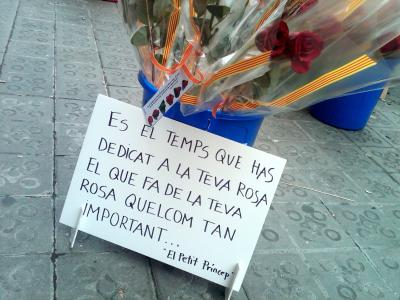 ES EL TEMPS QUE HAS
DEDICAT A LA TEVA ROSA
EL QUE FA DE LA TEVA
ROSA QUELCOM TAN
IMPORTANT...
"El Petit Príncep"